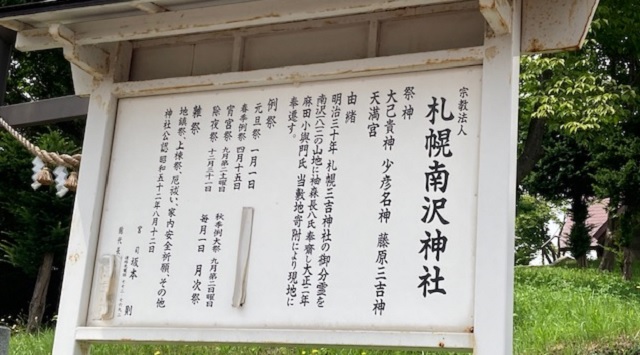 宗教法人
札幌南沢神社
祭神
大己貴神 少彦名神 藤原三吉神
天満宮
由緒
明治三十年 札幌三吉神社の御分霊を
南沢一八三の山地に袖森長八氏奉齋し大正二年
麻田小與門氏 当敷地寄附により現地に
奉遷す。
例祭
元旦祭 一月一日
春季例祭 四月十五日
宵宮祭 九月第二土曜日 秋季例大祭 九月第二日曜日
除夜祭 十二月三十一日 毎月一日 月次祭
雑祭
地鎮祭、上棟祭、厄祓い、家内安全祈願、その他
神社公認 昭和五十二年八月十二日
宮司 坂本 則
総代長